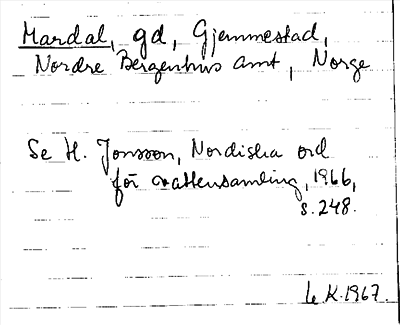 Mardal, gd, Gjemmestad,
Nordre Bergenhus amt, Norge
Se H. Jonsson, Nordiska ord
för vattensamling, 1966,
s. 248.
K. 1967.